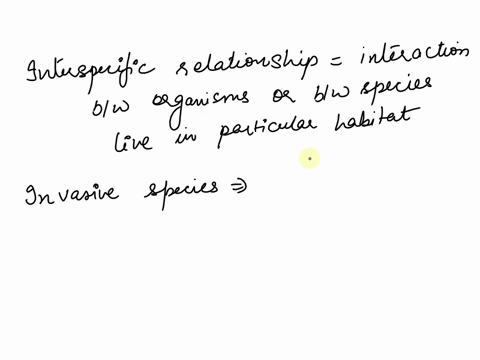 Interspecific relationship = interaction
b/w organisms or b/w species
live in particular habitat
Invasive species ⇒